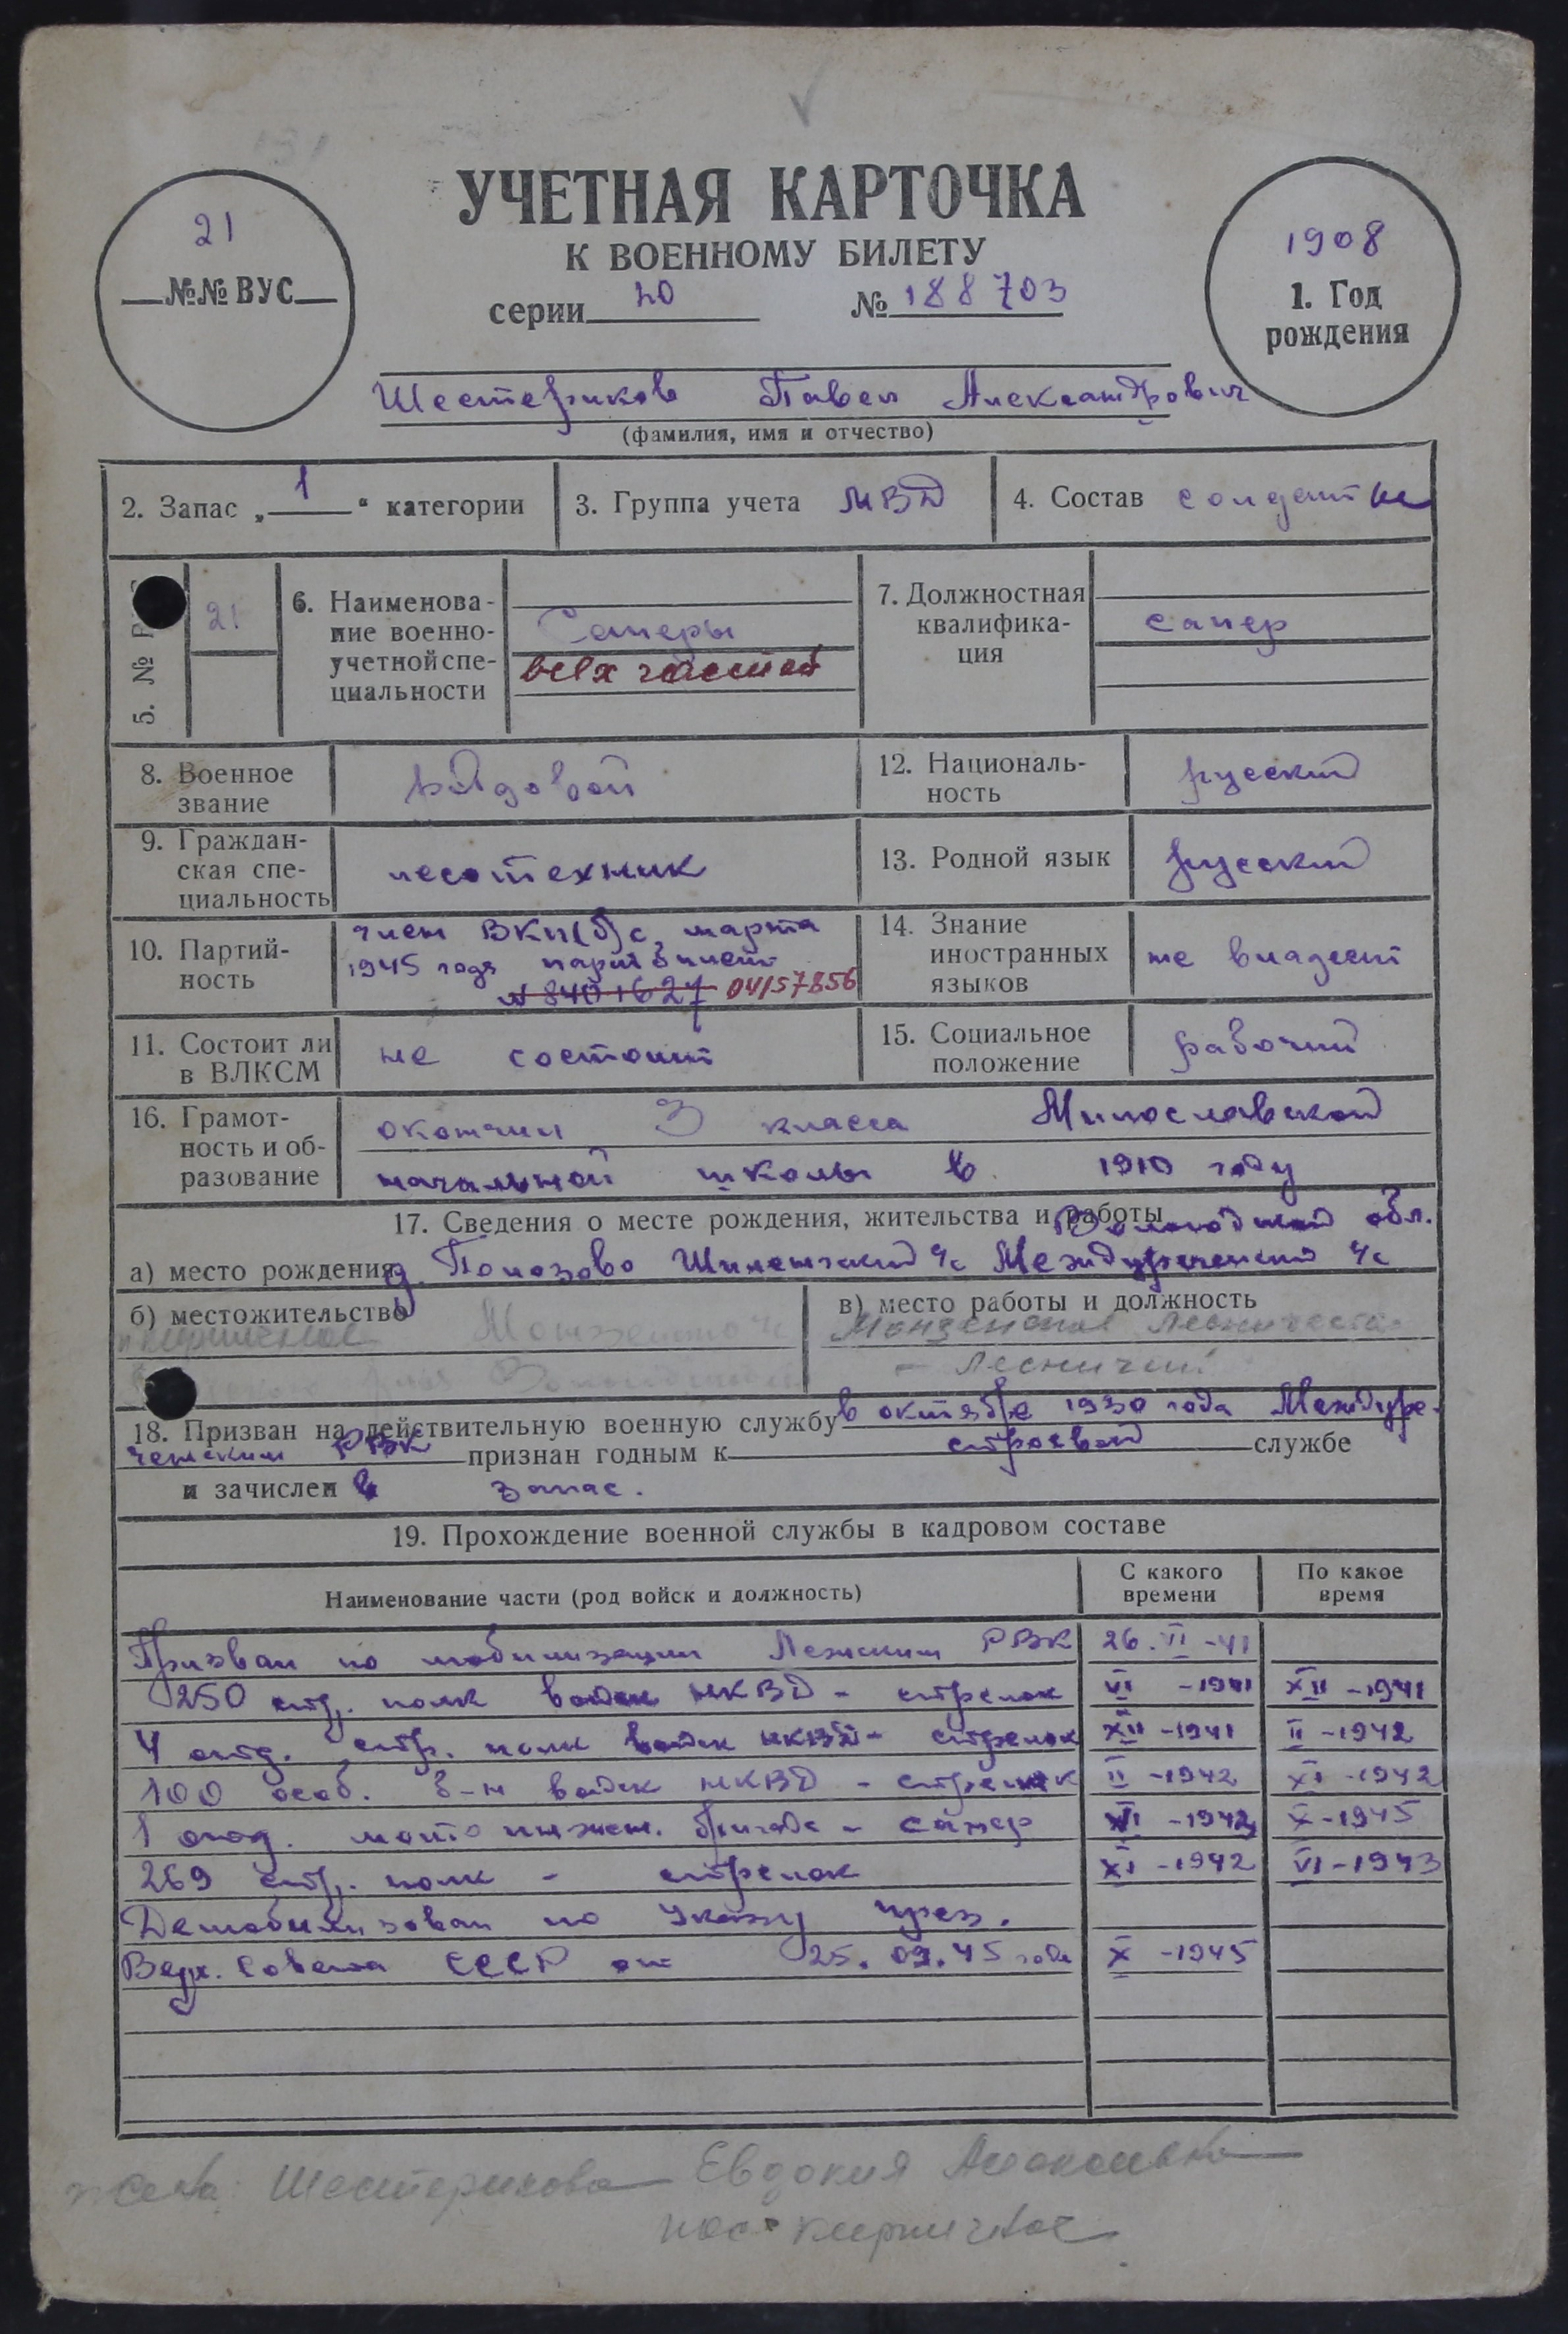 УЧЕТНАЯ КАРТОЧКА
К ВОЕННОМУ БИЛЕТУ
серии 20 № 188703
21
№№ ВУС
1908
1. Год
рождения
Шестериков Павел Александрович
(фамилия, имя и отчество)
2. Запас „1“ категории
3. Группа учета МВД
4. Состав солдатск
5. №
21
6. Наименова-
ние военно-
учетной спе-
циальности
Саперы
всех частей
7. Должностная
квалифика-
ция
сапер
8. Военное
звание
рядовой
12. Националь-
ность
русский
9. Граждан-
ская спе-
циальность
лесотехник
13. Родной язык
русский
10. Партий-
ность
член ВКП(б) с марта
1945 года парт билет
№ 8401627 04157856
14. Знание
иностранных
языков
не владеет
11. Состоит ли
в ВЛКСМ
не состоит
15. Социальное
положение
рабочий
16. Грамот-
ность и об-
разование
окончил 3 класса Милославской
начальной школы в 1910 году
17. Сведения о месте рождения, жительства и работы
Вологодской обл.
а) место рождения д. Попозово Шиленгский с/с Междуреченский
б) местожительство
в) место работы и должность
Лесничество
- Лесничий
18. Призван на действительную военную службу в октябре 1930 года Междуре-
ченским РВК признан годным к строевой службе
и зачислен в запас.
19. Прохождение военной службы в кадровом составе
Наименование части (род войск и должность)
С какого
времени
По какое
время
Призван по мобилизации Лежским РВК 26.VI-41
250 стр. полк войск НКВД - стрелок VI-1941 XII-1941
4 отд. стр. полк войск НКВД - стрелок XII-1941 II-1942
100 особ. б-н войск НКВД - стрелок II-1942 XI-1942
1 отд. мото инжен. бригада - сапер VI-1942 X-1945
269 стр. полк - стрелок XI-1942 VI-1943
Демобилизован по Указу през.
Верх. Совета СССР от 25.09.45 года X-1945
жена: Шестерикова Евдокия
пос. кирпичное